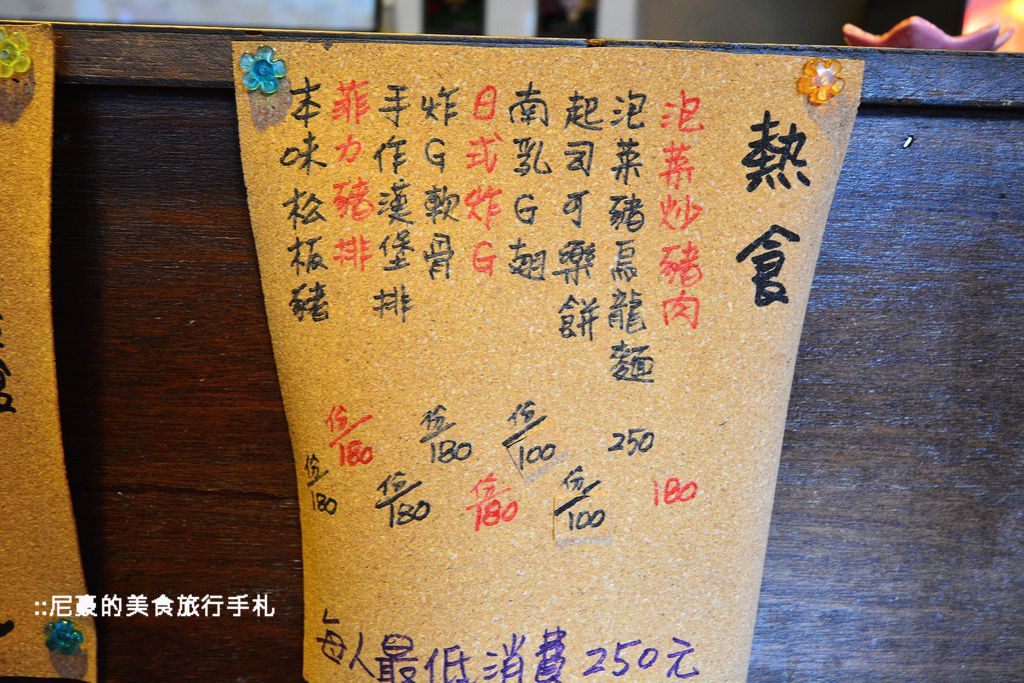 熱食
泡菜炒豬肉 180
泡菜豬烏龍麵 250
起司可樂餅 份/100
南乳G翅 份/100
日式炸G 份/180
炸G軟骨 份/180
手作漢堡排 份/180
菲力豬排 份/180
本味松板豬 份/180
每人最低消費250元
食
::尼豪的美食旅行手札